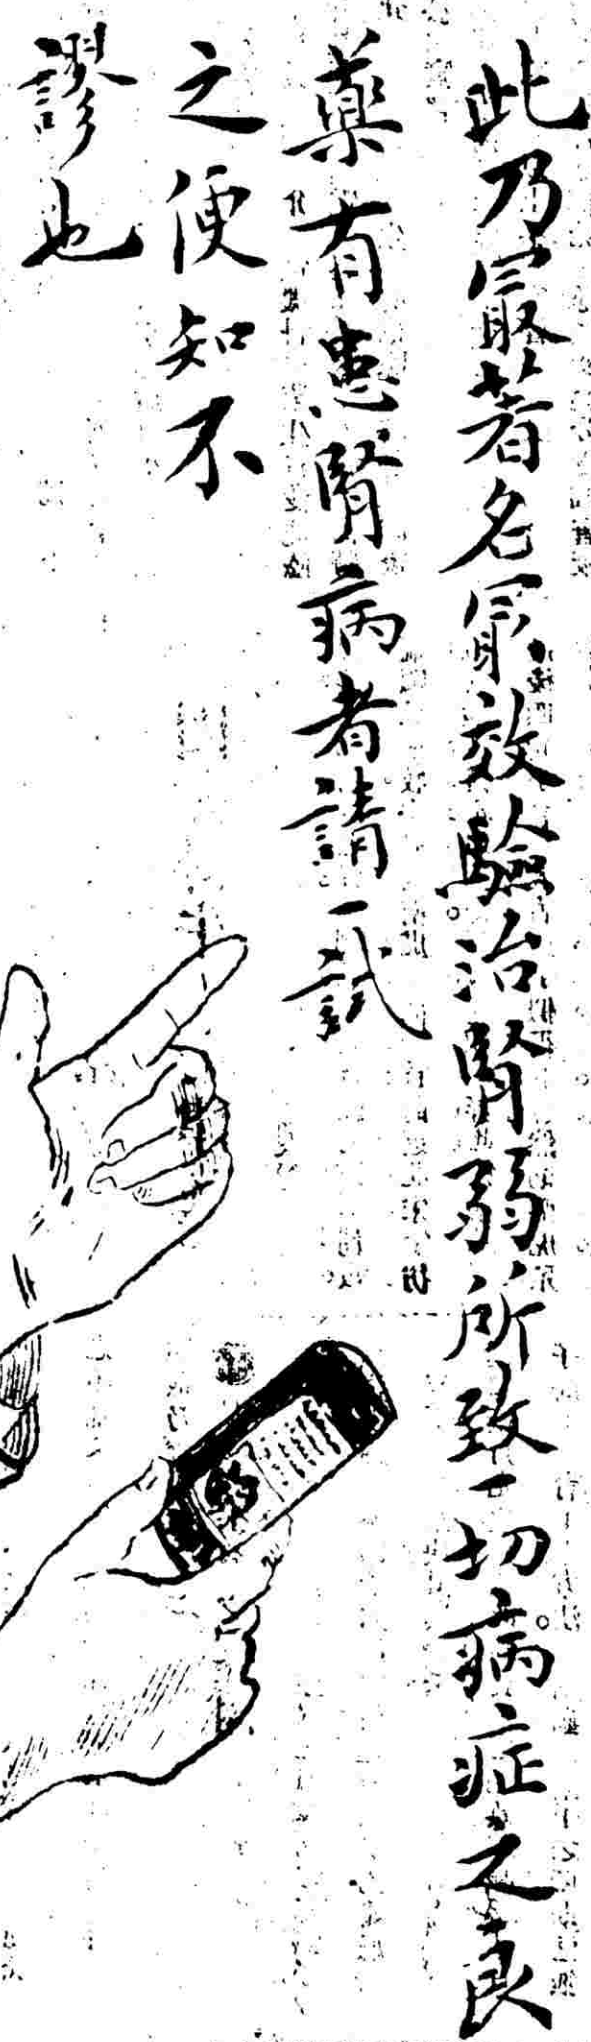 此乃最著名最效驗治腎弱所致一切病症之良
藥有患腎病者請一試
之便知不
謬也